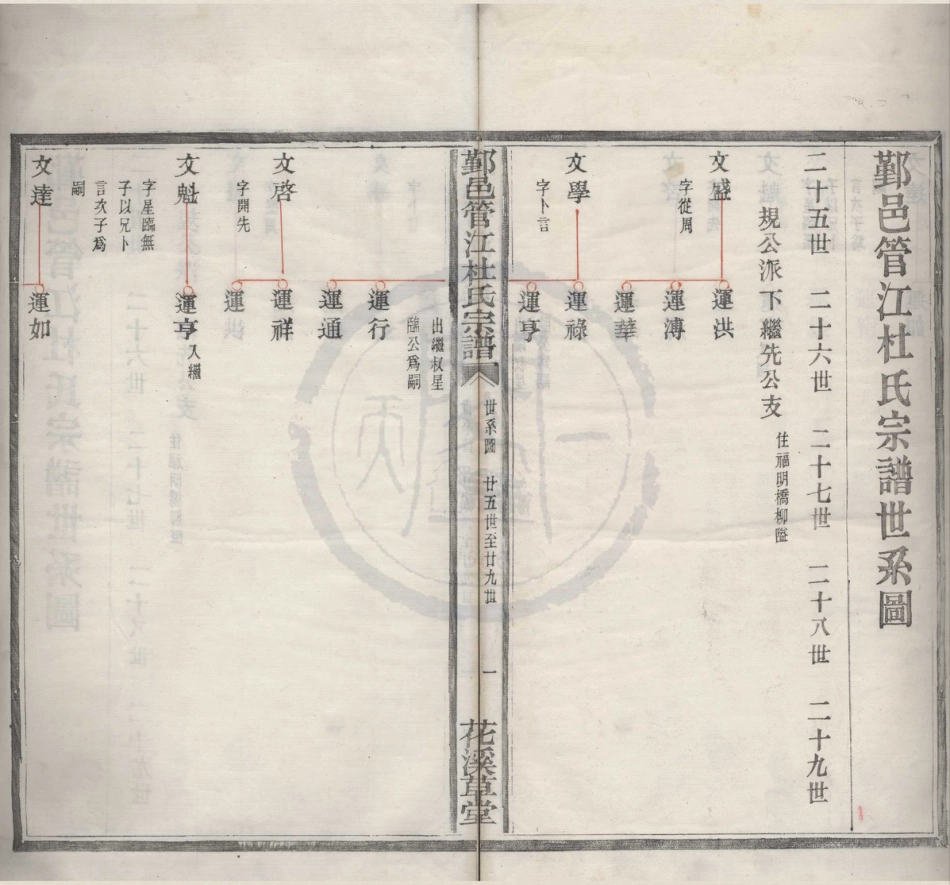 鄞邑管江杜氏宗譜世系圖
二十五世 二十六世 二十七世 二十八世 二十九世
規公派下繼先公支 住福明橋柳隘
文盛 運洪
字從周 運溥
運華
文學 運祿
字卜言 運亨
鄞邑管江杜氏宗譜 世系圖 廿五世至廿九世 一 花溪草堂
出繼叔星
臨公爲嗣
運行
運通
文啓 運祥
字開先 運洪
文魁 運亨 入繼
字星臨無
子以兄卜
言次子爲
嗣
文達 運如